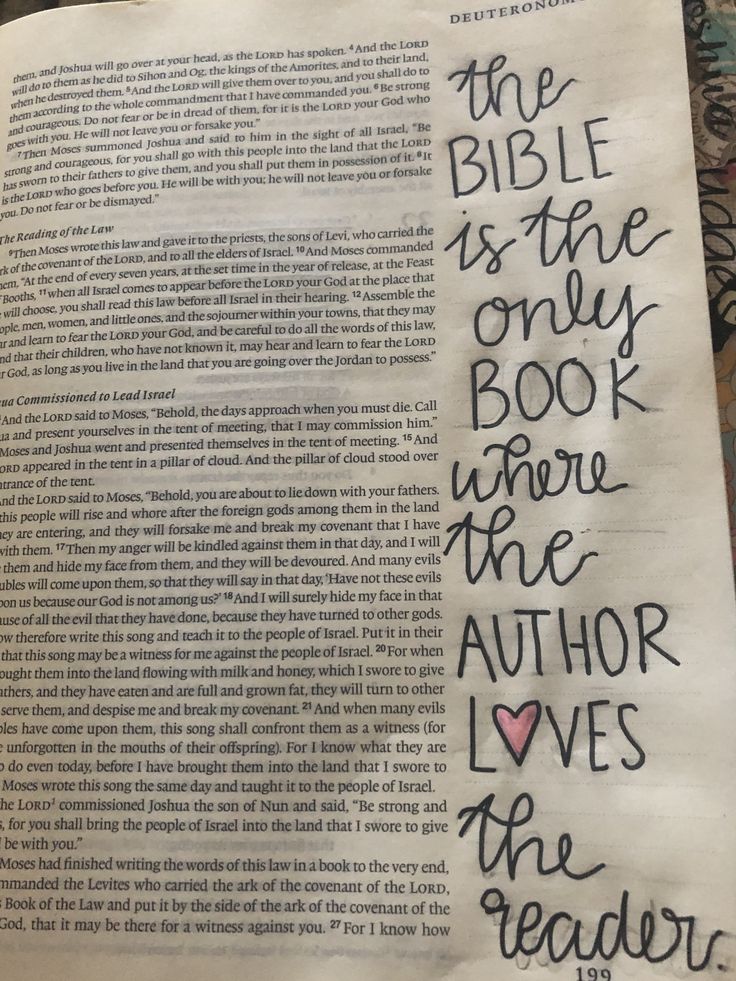 DEUTERONOM
them, and Joshua will go over at your head, as the LORD has spoken. 4And the LORD
will do to them as he did to Sihon and Og, the kings of the Amorites, and to their land,
when he destroyed them. 5And the LORD will give them over to you, and you shall do to
them according to the whole commandment that I have commanded you. 6Be strong
and courageous. Do not fear or be in dread of them, for it is the LORD your God who
goes with you. He will not leave you or forsake you."
7Then Moses summoned Joshua and said to him in the sight of all Israel, "Be
strong and courageous, for you shall go with this people into the land that the LORD
has sworn to their fathers to give them, and you shall put them in possession of it. 8It
is the LORD who goes before you. He will be with you; he will not leave you or forsake
you. Do not fear or be dismayed."
The Reading of the Law
9Then Moses wrote this law and gave it to the priests, the sons of Levi, who carried the
rk of the covenant of the LORD, and to all the elders of Israel. 10And Moses commanded
em, "At the end of every seven years, at the set time in the year of release, at the Feast
Booths, 11when all Israel comes to appear before the LORD your God at the place that
will choose, you shall read this law before all Israel in their hearing. 12Assemble the
ople, men, women, and little ones, and the sojourner within your towns, that they may
ar and learn to fear the LORD your God, and be careful to do all the words of this law,
nd that their children, who have not known it, may hear and learn to fear the LORD
r God, as long as you live in the land that you are going over the Jordan to possess."
ua Commissioned to Lead Israel
And the LORD said to Moses, "Behold, the days approach when you must die. Call
ua and present yourselves in the tent of meeting, that I may commission him."
Moses and Joshua went and presented themselves in the tent of meeting. 15And
ORD appeared in the tent in a pillar of cloud. And the pillar of cloud stood over
ntrance of the tent.
And the LORD said to Moses, "Behold, you are about to lie down with your fathers.
this people will rise and whore after the foreign gods among them in the land
hey are entering, and they will forsake me and break my covenant that I have
with them. 17Then my anger will be kindled against them in that day, and I will
them and hide my face from them, and they will be devoured. And many evils
ubles will come upon them, so that they will say in that day, 'Have not these evils
pon us because our God is not among us?' 18And I will surely hide my face in that
ause of all the evil that they have done, because they have turned to other gods.
ow therefore write this song and teach it to the people of Israel. Put it in their
that this song may be a witness for me against the people of Israel. 20For when
ought them into the land flowing with milk and honey, which I swore to give
athers, and they have eaten and are full and grown fat, they will turn to other
serve them, and despise me and break my covenant. 21And when many evils
bles have come upon them, this song shall confront them as a witness (for
e unforgotten in the mouths of their offspring). For I know what they are
o do even today, before I have brought them into the land that I swore to
Moses wrote this song the same day and taught it to the people of Israel.
he LORD1 commissioned Joshua the son of Nun and said, "Be strong and
s, for you shall bring the people of Israel into the land that I swore to give
l be with you."
Moses had finished writing the words of this law in a book to the very end,
mmanded the Levites who carried the ark of the covenant of the LORD,
s Book of the Law and put it by the side of the ark of the covenant of the
God, that it may be there for a witness against you. 27For I know how
the
BIBLE
is the
only
BOOK
where
the
AUTHOR
LOVES
the
reader.
199
oshua
udges